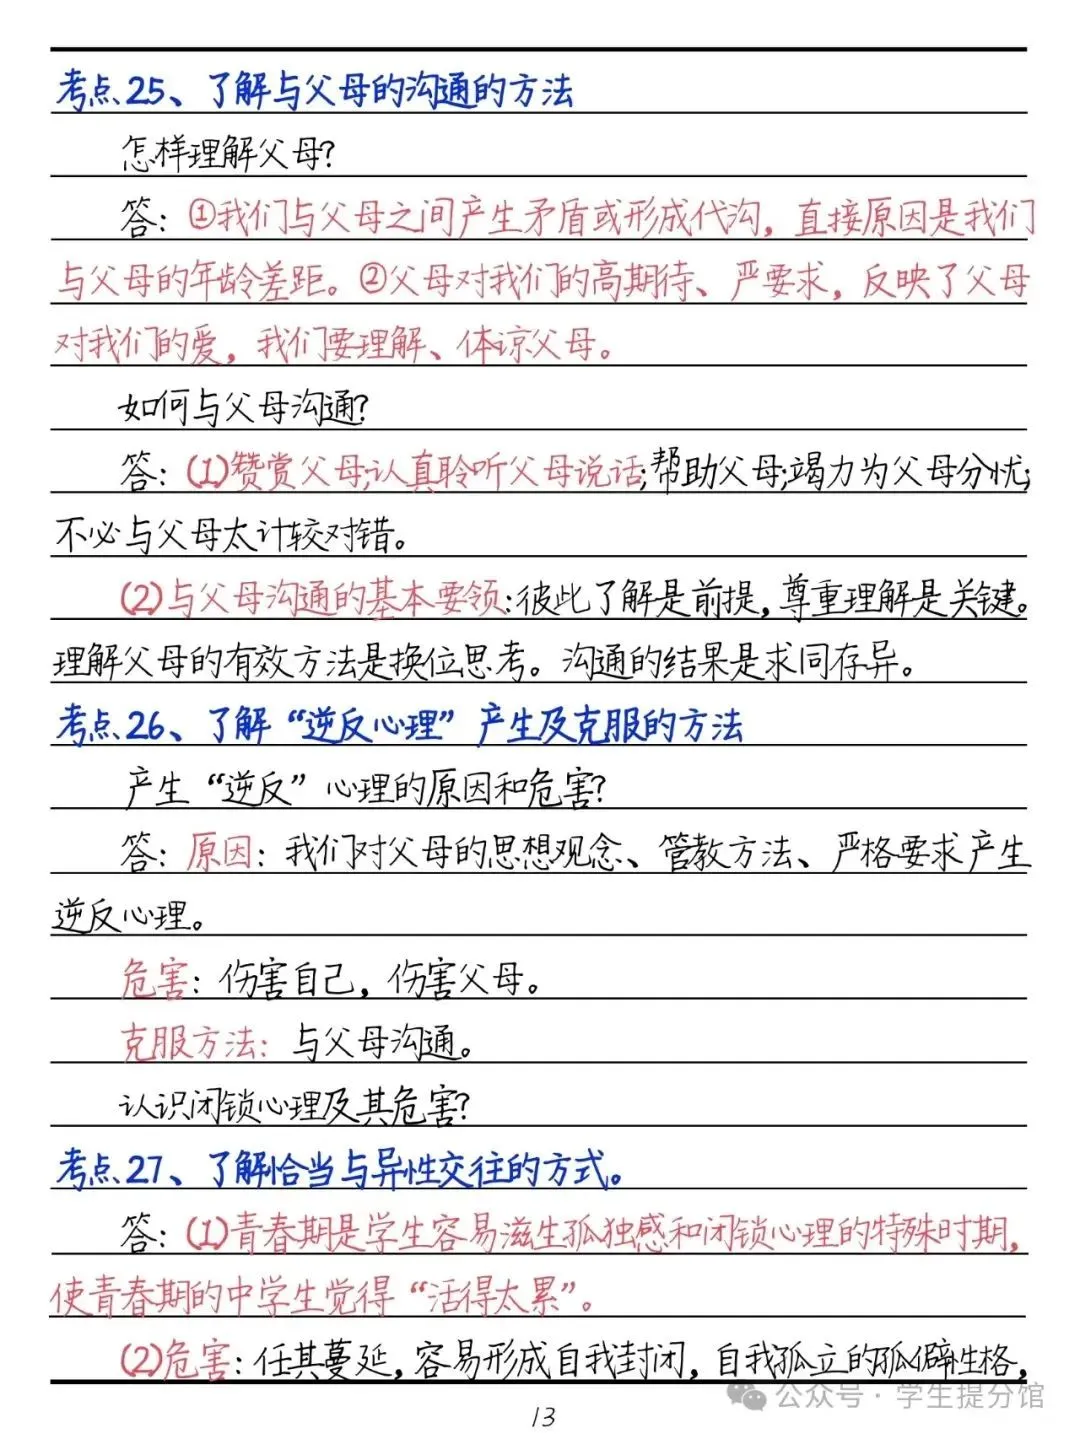 考点25、了解与父母的沟通的方法
怎样理解父母?
答：①我们与父母之间产生矛盾或形成代沟，直接原因是我们
与父母的年龄差距。②父母对我们的高期待、严要求，反映了父母
对我们的爱，我们要理解、体谅父母。
如何与父母沟通?
答：(1)赞赏父母;认真聆听父母说话;帮助父母;竭力为父母分忧;
不必与父母太计较对错。
(2)与父母沟通的基本要领:彼此了解是前提，尊重理解是关键。
理解父母的有效方法是换位思考。沟通的结果是求同存异。
考点26、了解“逆反心理”产生及克服的方法
产生“逆反”心理的原因和危害?
答：原因：我们对父母的思想观念、管教方法、严格要求产生
逆反心理。
危害：伤害自己，伤害父母。
克服方法：与父母沟通。
认识闭锁心理及其危害?
考点27、了解恰当与异性交往的方式。
答：(1)青春期是学生容易滋生孤独感和闭锁心理的特殊时期，
使青春期的中学生觉得“活得太累”。
(2)危害：任其蔓延，容易形成自我封闭，自我孤立的孤僻性格，
公众号·学生提分馆
13